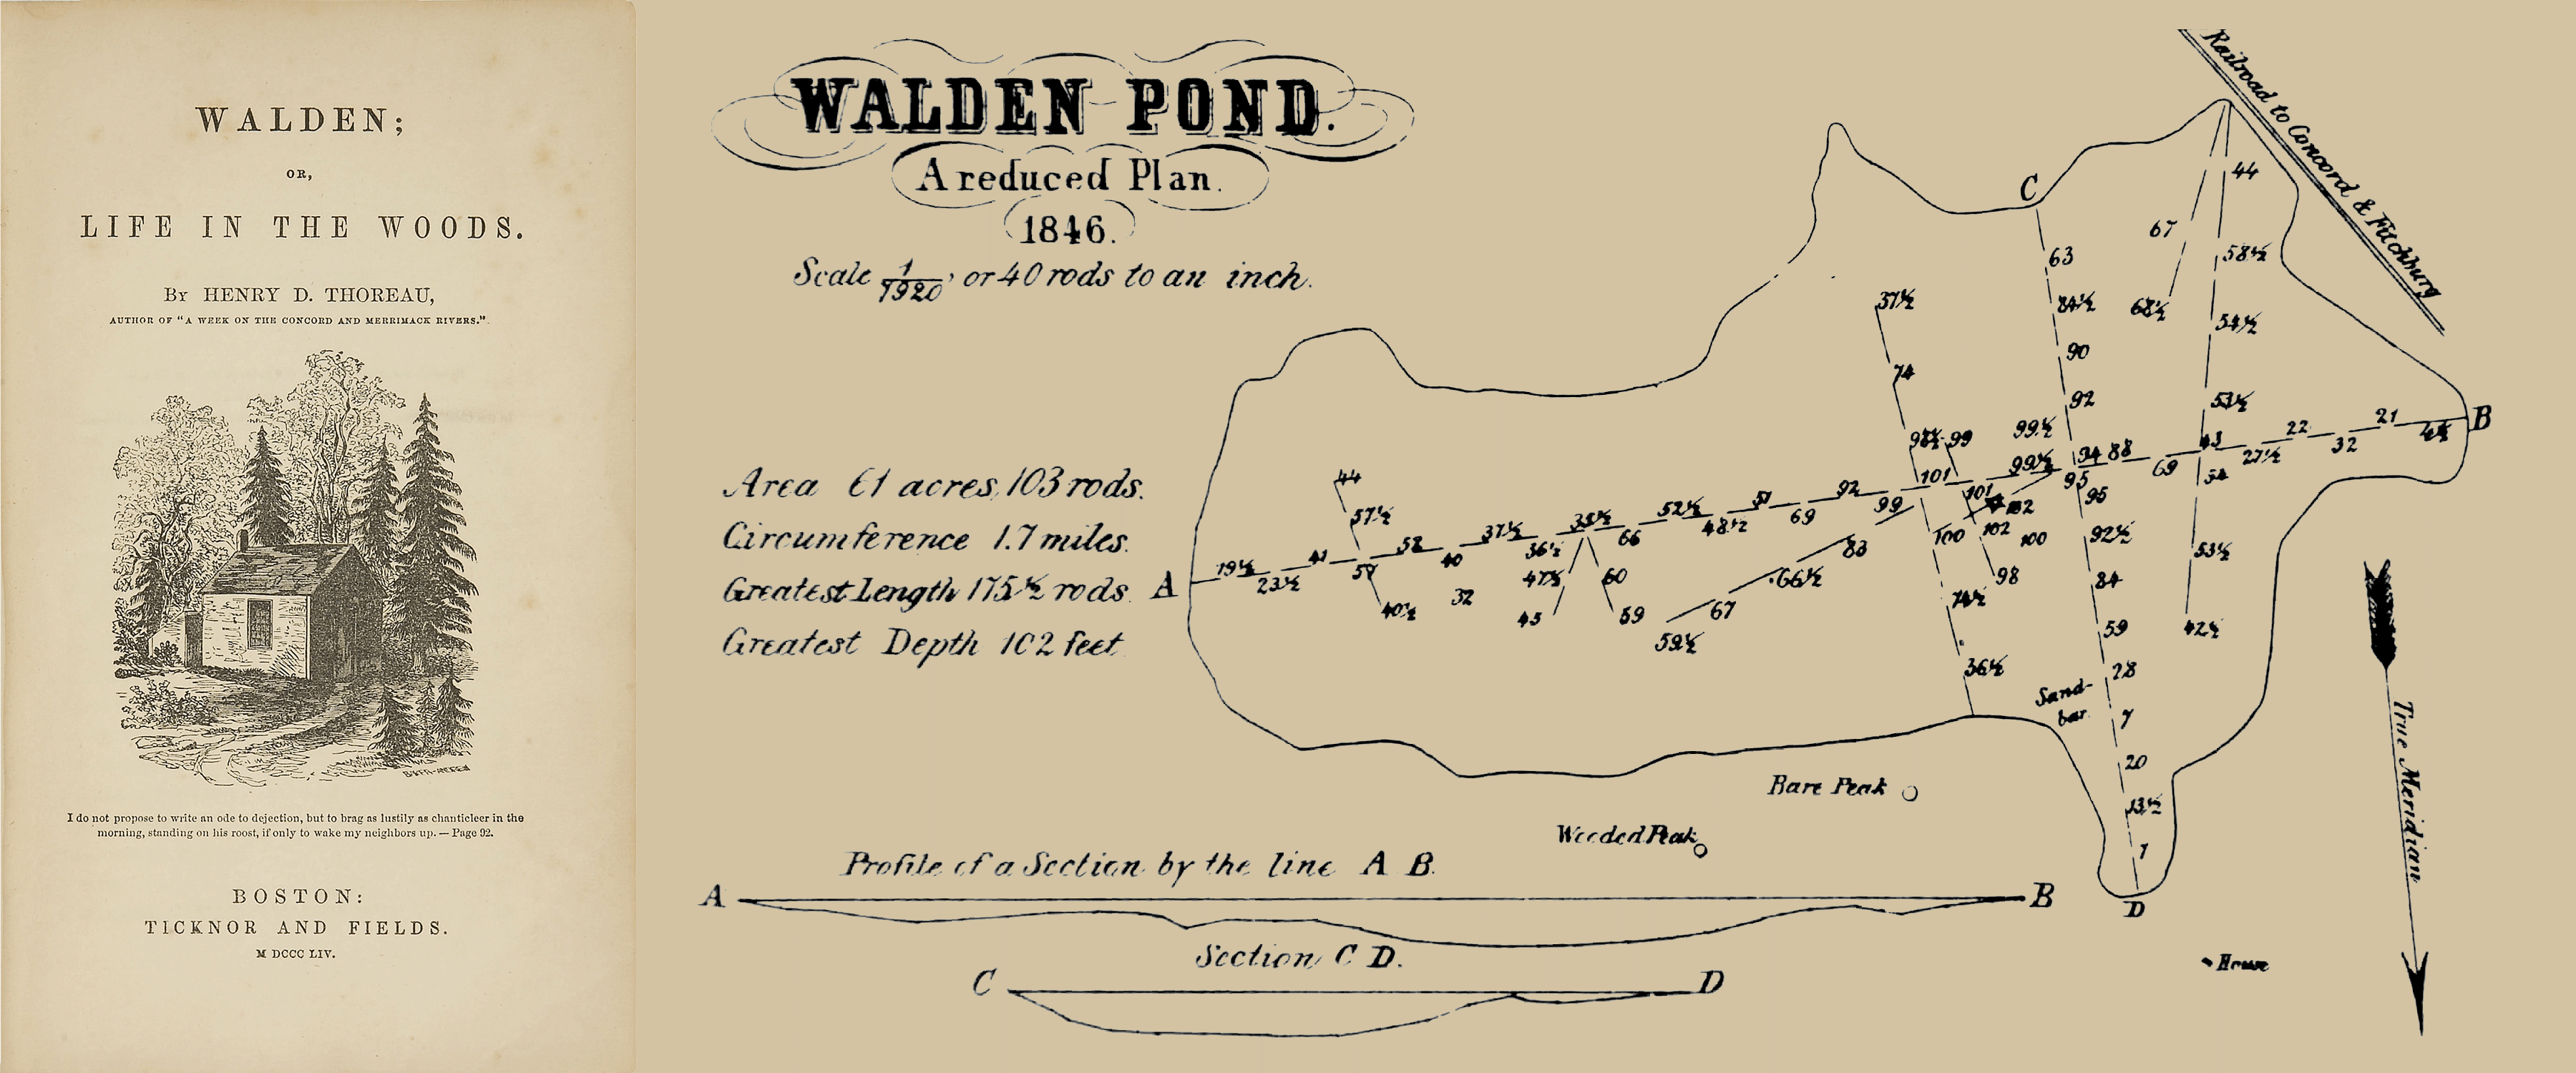 WALDEN;
OR,
LIFE IN THE WOODS.
By HENRY D. THOREAU,
AUTHOR OF "A WEEK ON THE CONCORD AND MERRIMACK RIVERS."
I do not propose to write an ode to dejection, but to brag as lustily as chanticleer in the
morning, standing on his roost, if only to wake my neighbors up. — Page 92.
BOSTON:
TICKNOR AND FIELDS.
M DCCC LIV.
WALDEN POND.
A reduced Plan.
1846.
Scale 1/1920, or 40 rods to an inch.
Area 61 acres, 103 rods.
Circumference 1.7 miles.
Greatest Length 175½ rods.
Greatest Depth 102 feet.
Railroad to Concord & Fitchburg
C
44
67
63
58½
84½
68½
57½
54½
90
74
92
53½
B
21
22
99½
99
88
32
69
27½
101
95
95
44
57½
52½
51
92
99
69
48½
66
37½
36½
58
41
40
19½
23½
A
100
102
100
92½
53½
83
66½
98
84
47½
60
32
40½
45
59
67
59½
74½
59
42½
36½
28
Sand-
bar
7
20
13½
1
D
True Meridian
Bare Peak
Wooded Peak
House
Profile of a Section by the line A B.
A B
Section C D.
C D